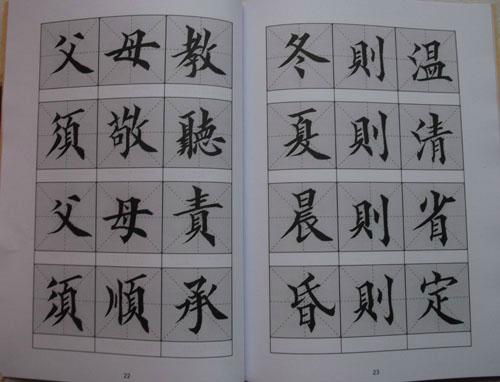 父母教
須敬聽
父母責
須順承
22
冬則温
夏則清
晨則省
昏則定
23